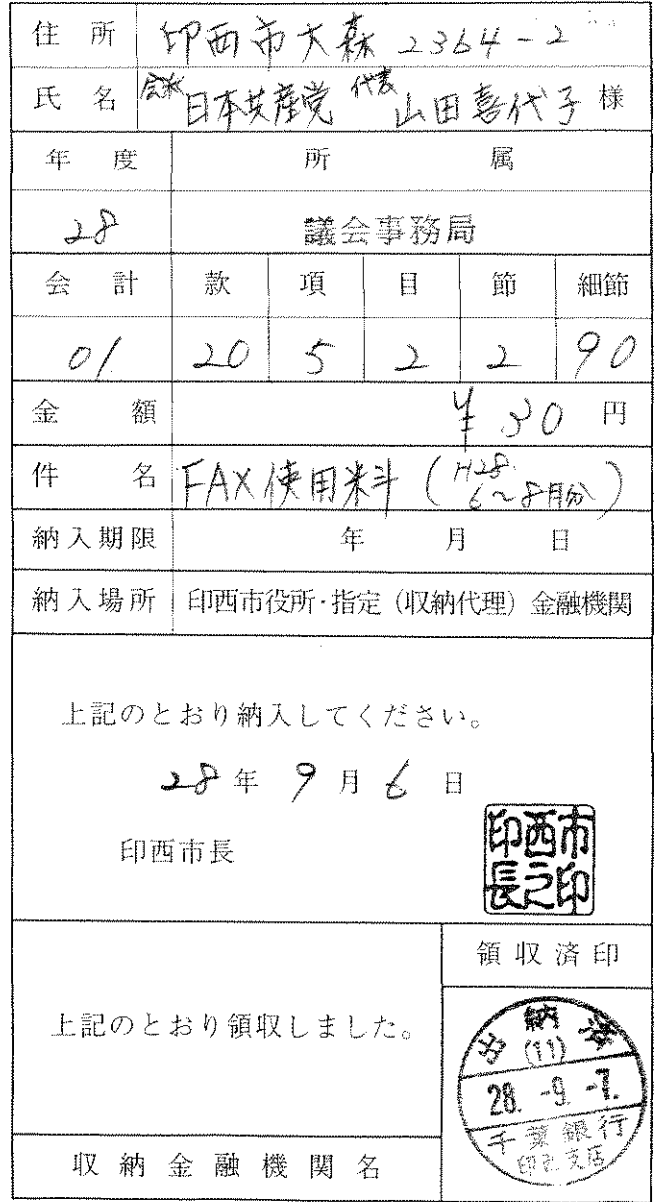 住所 印西市大森 2364-2
氏名 会派 日本共産党 代表 山田喜代子 様
年度 所属
28 議会事務局
会計 款 項 目 節 細節
01 20 5 2 2 90
金額 ¥30 円
件名 FAX使用料 (H28. 6~8月分)
納入期限 年 月 日
納入場所 印西市役所・指定(収納代理)金融機関
上記のとおり納入してください。
28年 9月 6日
印西市長
印西市長之印
領収済印
上記のとおり領収しました。
出納済
(11)
28. -9. -7.
千葉銀行
印西支店
収納金融機関名